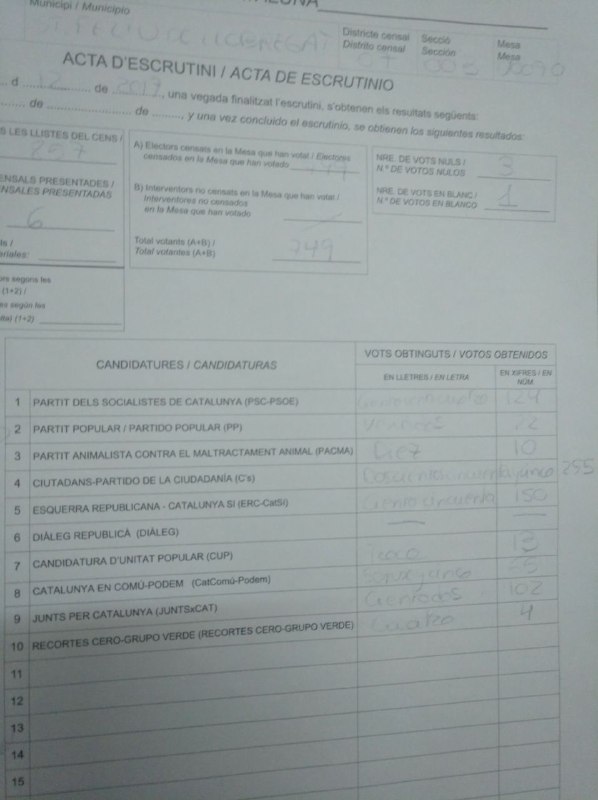 Municipi / Municipio
Districte censal Secció Mesa
Distrito censal Sección Mesa
ACTA D'ESCRUTINI / ACTA DE ESCRUTINIO
d 12 de 2017, una vegada finalitzat l'escrutini, s'obtenen els resultats següents:
de de , y una vez concluido el escrutinio, se obtienen los siguientes resultados:
S LES LLISTES DEL CENS /
857
A) Electors censats en la Mesa que han votat / Electores
censados en la Mesa que han votado
NRE. DE VOTS NULS / 3
N.º DE VOTOS NULOS
ENSALS PRESENTADES /
NSALES PRESENTADAS
6
B) Interventors no censats en la Mesa que han votat /
Interventores no censados
en la Mesa que han votado
NRE. DE VOTS EN BLANC / 1
N.º DE VOTOS EN BLANCO
ls /
riales:
Total votants (A+B) / 749
Total votantes (A+B)
ors segons les
(1+2) /
es según las
ital (1+2)
CANDIDATURES / CANDIDATURAS VOTS OBTINGUTS / VOTOS OBTENIDOS
EN LLETRES / EN LETRA EN XIFRES / EN
NÚM.
1 PARTIT DELS SOCIALISTES DE CATALUNYA (PSC-PSOE) 124
2 PARTIT POPULAR / PARTIDO POPULAR (PP) 22
3 PARTIT ANIMALISTA CONTRA EL MALTRACTAMENT ANIMAL (PACMA) Diez 10
4 CIUTADANS-PARTIDO DE LA CIUDADANÍA (C's) 255
5 ESQUERRA REPUBLICANA - CATALUNYA SI (ERC-CatSí) Ciento cincuenta 150
6 DIÀLEG REPUBLICÀ (DIÀLEG) — —
7 CANDIDATURA D'UNITAT POPULAR (CUP) Trece 13
8 CATALUNYA EN COMÚ-PODEM (CatComú-Podem)
9 JUNTS PER CATALUNYA (JUNTSxCAT) Cientodos 102
10 RECORTES CERO-GRUPO VERDE (RECORTES CERO-GRUPO VERDE) Cuatro 4
11
12
13
14
15